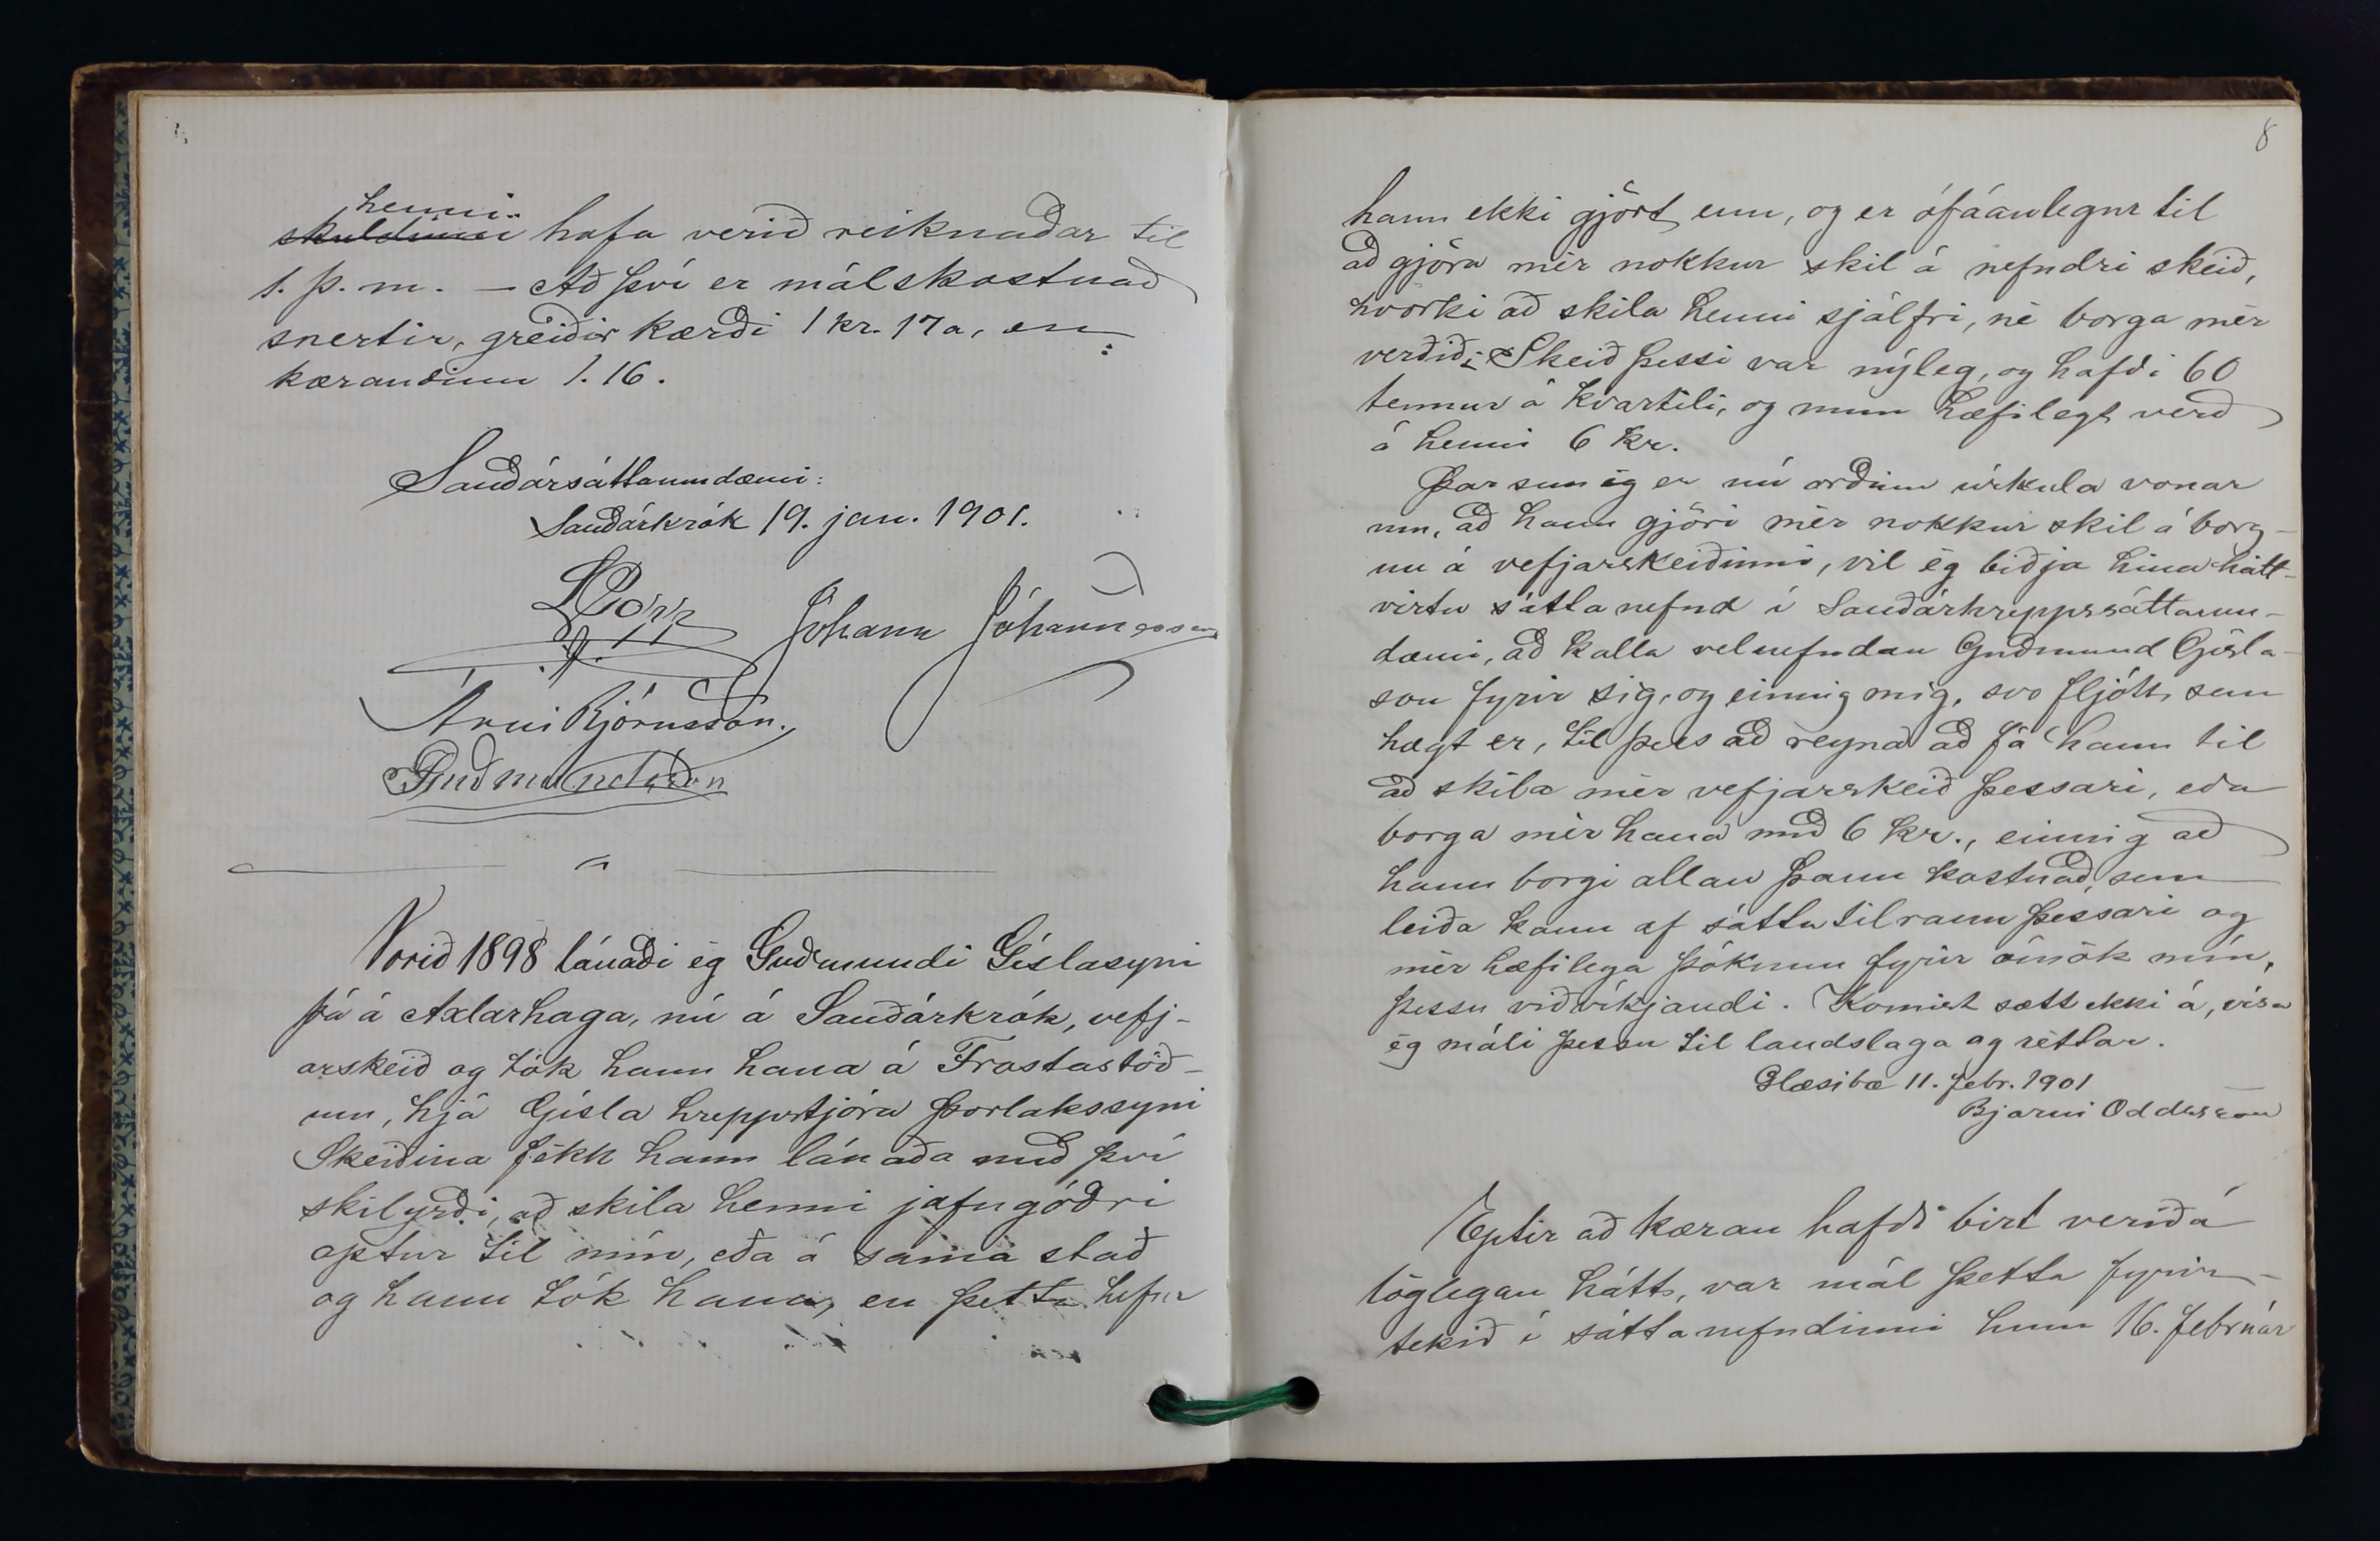 henni
skuldinni hafa verið reiknaðar til
1. þ. m. – Að því er málskostnað
snertir, greiðir kærði 1 kr. 17a, en
kærandinn 1.16.
Sauðársáttaumdæmi:
Sauðárkrók 19. jan. 1901.
Jóhann Jóhannesson
Árni Björnsson.
Guðmundsson
Vorið 1898 lánaði ég Guðmundi Gíslasyni
þá á Axlarhaga, nú á Sauðárkrók, vefj-
arskeið og tók hann hana á Frostastöð-
um, hjá Gísla hreppstjóra Þorlakssyni
Skeiðina fékk hann lánaða með því
skilyrði, að skila henni jafngóðri
aptur til mín, eða á sama stað
og hann tók hana, en þetta hefur
8
hann ekki gjört enn, og er ófáanlegur til
að gjöra mér nokkur skil á nefndri skeið,
hvorki að skila henni sjálfri, né borga mér
verðið. Skeið þessi var nýleg, og hafði 60
tennur á kvartili, og mun hæfilegt verð
á henni 6 kr.
Þar sem ég er nú orðinn úrkula vonar
um, að hann gjöri mér nokkur skil á borg-
un á vefjarskeiðinni, vil ég biðja hina hátt-
virtu sáttanefnd í Sauðárhreppssáttaum-
dæmi, að kalla velnefndan Guðmund Gísla-
son fyrir sig, og einnig mig, svo fljótt sem
hægt er, til þess að reyna að fá hann til
að skila mér vefjarskeið þessari, eða
borga mér hana með 6 kr., einnig að
hann borgi allan þann kostnað, sem
leiða kann af sáttatilraun þessari og
mér hæfilega þóknun fyrir ómök mín,
þessu viðvíkjandi. Komist sætt ekki á, vísa
ég máli þessu til landslaga og réttar.
Glæsibæ 11. febr. 1901
Bjarni Oddsson
Eptir að kæran hafði birt verið á
löglegan hátt, var mál þetta fyrir-
tekið í sáttanefndinni hinn 16. febrúar